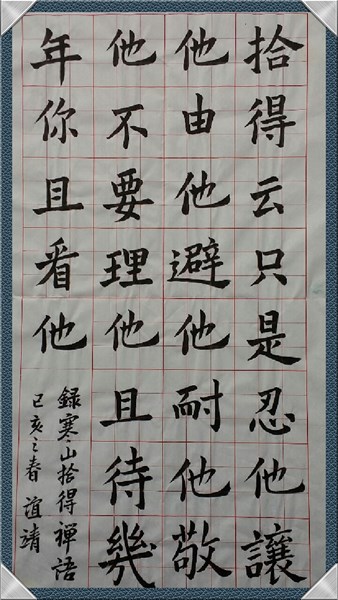 拾得云只是忍他讓
他由他避他耐他敬
他不要理他且待幾
年你且看他
録寒山拾得禅語
己亥之春 誼靖